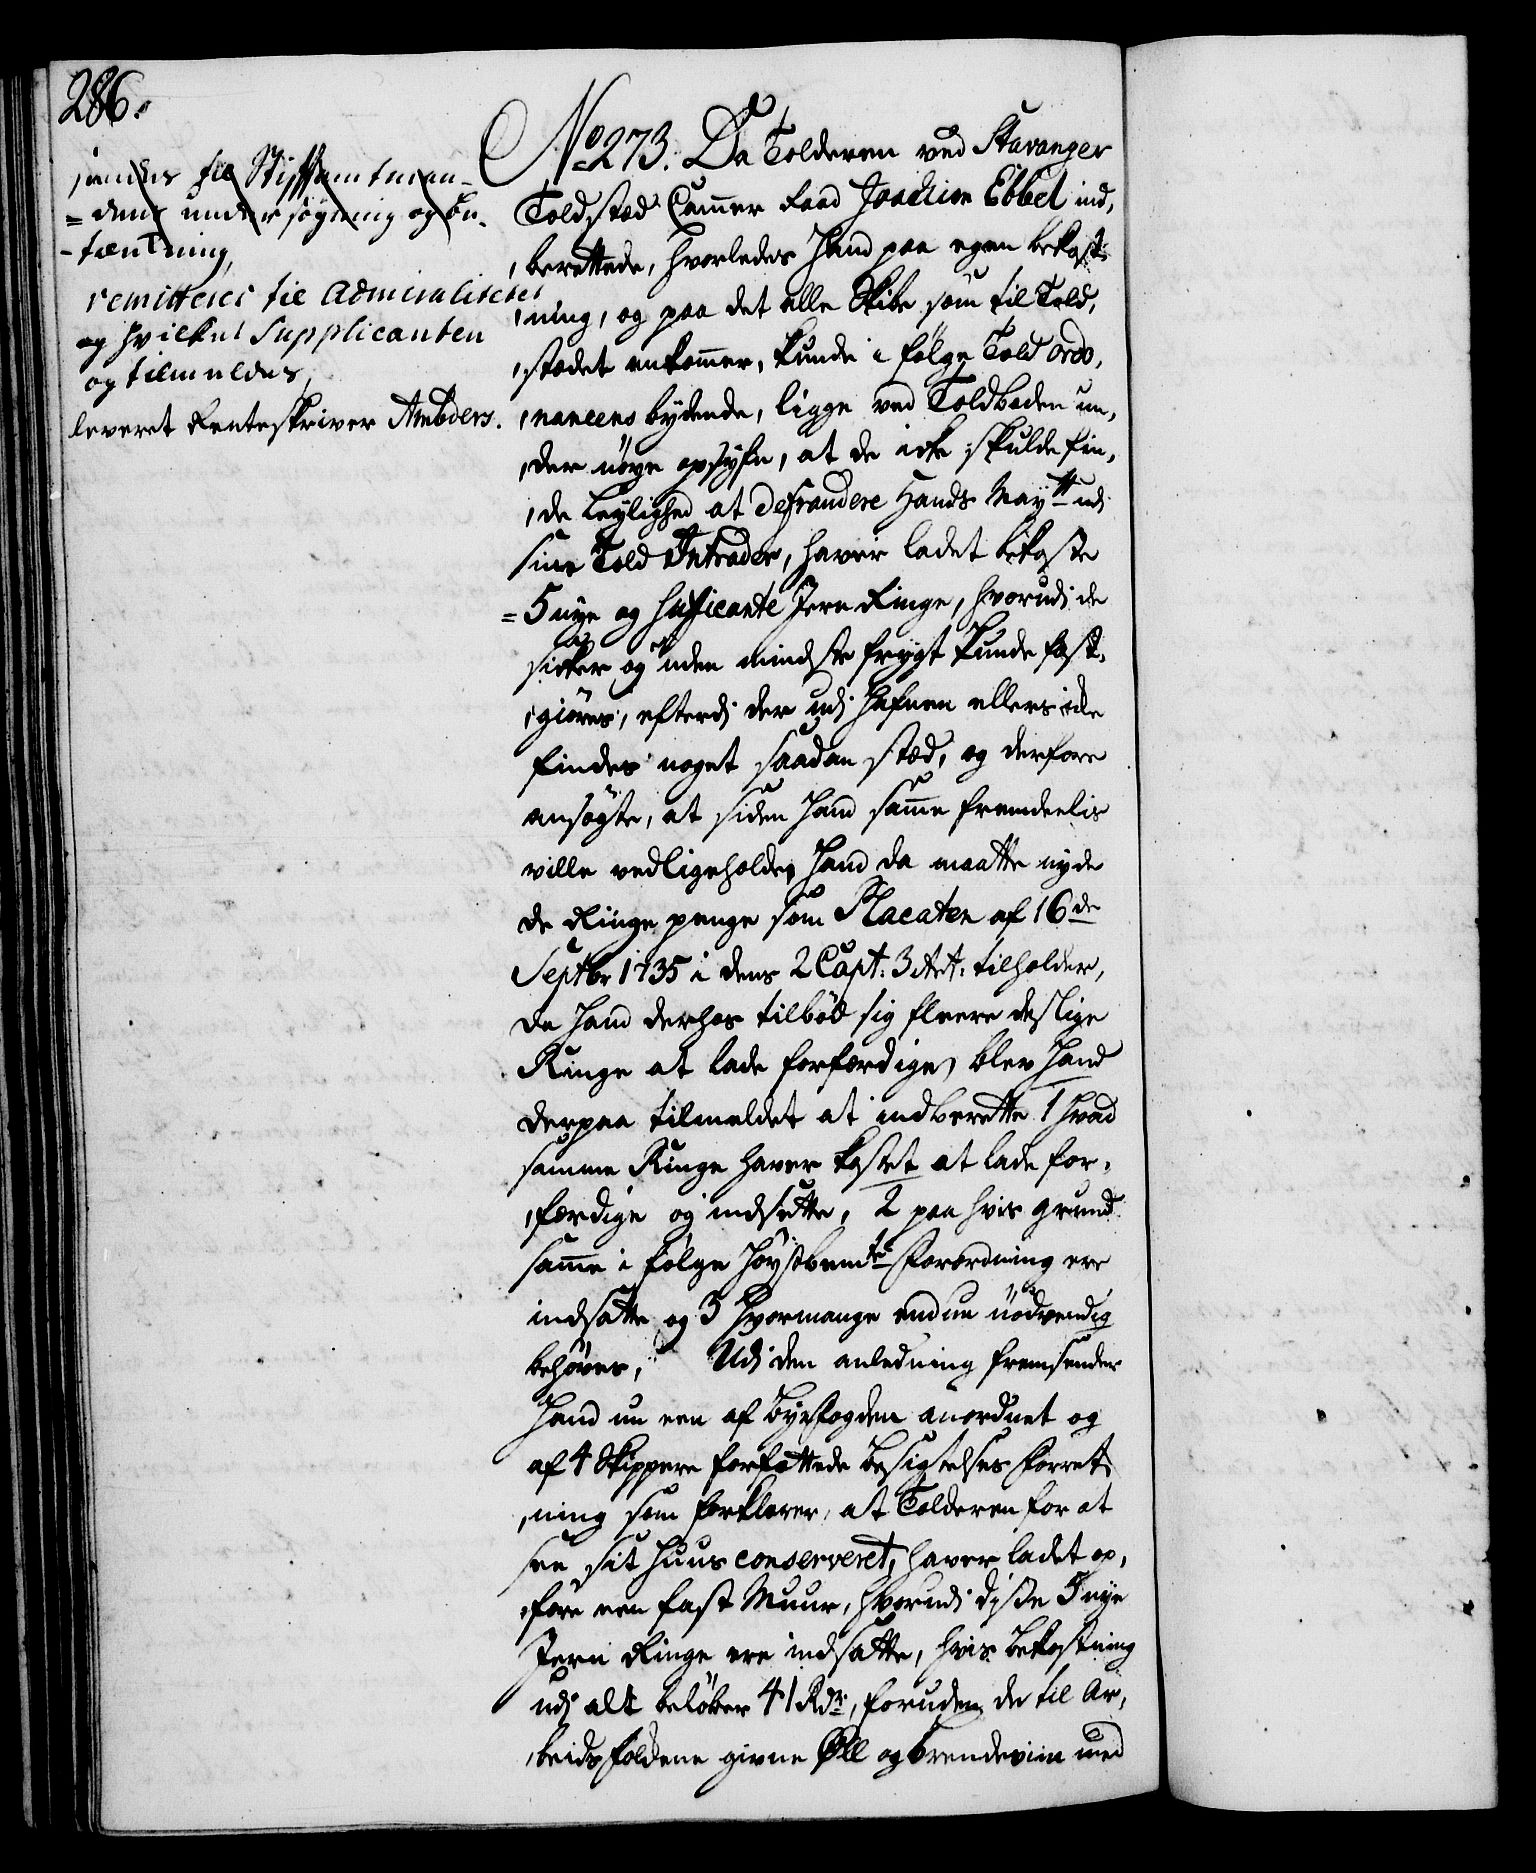 286.
sendes til Stiftamtman-
=dens undersøgning og be-
-tænkning,
remitteres til Admiralitetet
og hvilket Supplicanten
og tilmeldes,
leveret Renteskriver Ambders.
No 273. Da Tolderen ved Stavanger
Toldsted Cammer Raad Joachim Ebbel ind,
,berettede, hvorledes Hand paa egen bekost-
,ning, og paa det alle Skibe som til Told,
,stedet ankommer, kunde i følge Told ordo,
,nancens bydende, ligge ved Toldboden un,
,der nøye opsyhn, at de icke skulde fin,
,de leylighed at defraudere Hands Maytt udi
sine Told Intrader, haver ladet bekoste
=5 nye og suficante Jern Ringe, hvorudi de
sicker og uden mindste frygt kunde fast,
,giøres, efterdi der udi Hafnen ellers icke
findes noget saadan sted, og derfore
ansøgte, at siden Hand samme fremdeelis
ville vedligeholde, Hand da maatte nyde
de Ringe penge som Placaten af 16de
Septbr 1735 i dens 2 Capt: 3 Art: tilholder,
da Hand derhos tilbød sig fleere deslige
Ringe at lade forfærdige, blev Hand
derpaa tilmeldet at indberette 1 hvad
samme Ringe haver kostet at lade for,
,færdige og indsette, 2 paa hvis grund
samme i følge høystbemte Forordning ere
indsatte og 3 hvormange endnu nødvendig
behøves, Udi den anledning fremsender
Hand nu een af Byefogden anordnet og
af 4 Skippere forfattede besigtelses forret,
,ning som forklarer, at Tolderen for at
see sit Huus conserveret, haver ladet op,
,føre een fast Muur, hvorudi disse 5 nye
Jern Ringe ere indsatte, hvis bekostning
udi alt beløber 41 Rdr, foruden de til Ar,
,beidsfolckene givne Øll og brendeviin med